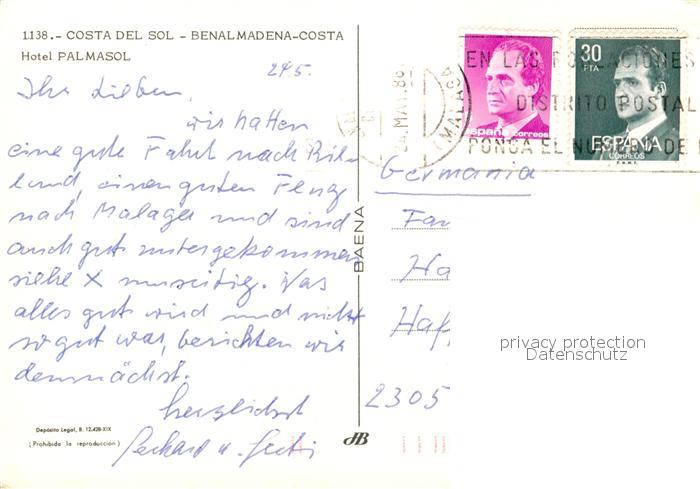 1.138.- COSTA DEL SOL - BENALMADENA-COSTA
Hotel PALMASOL
24.5.
Ihr Lieben,
wir hatten
eine gute Fahrt nach
land, einen guten Flug
nach Malaga und sind
auch gut untergekommen
siehe X umseitig. Was
alles gut wird und nicht
so gut war, berichten wir
demnächst.
herzlichst
Gerhard u.
Depósito Legal, B. 12.428-XIX
(Prohibida la reproducción)
BAENA
JB
24.MAY.86
(MALAGA)
EN LAS POBLACIONES
DISTRITO POSTAL
PONGA EL NUMERO DE
españa correos
30
PTA
ESPAÑA
CORREOS
F.N.M.T.
Germania
Fam
Ha
Haf
2305
privacy protection
Datenschutz